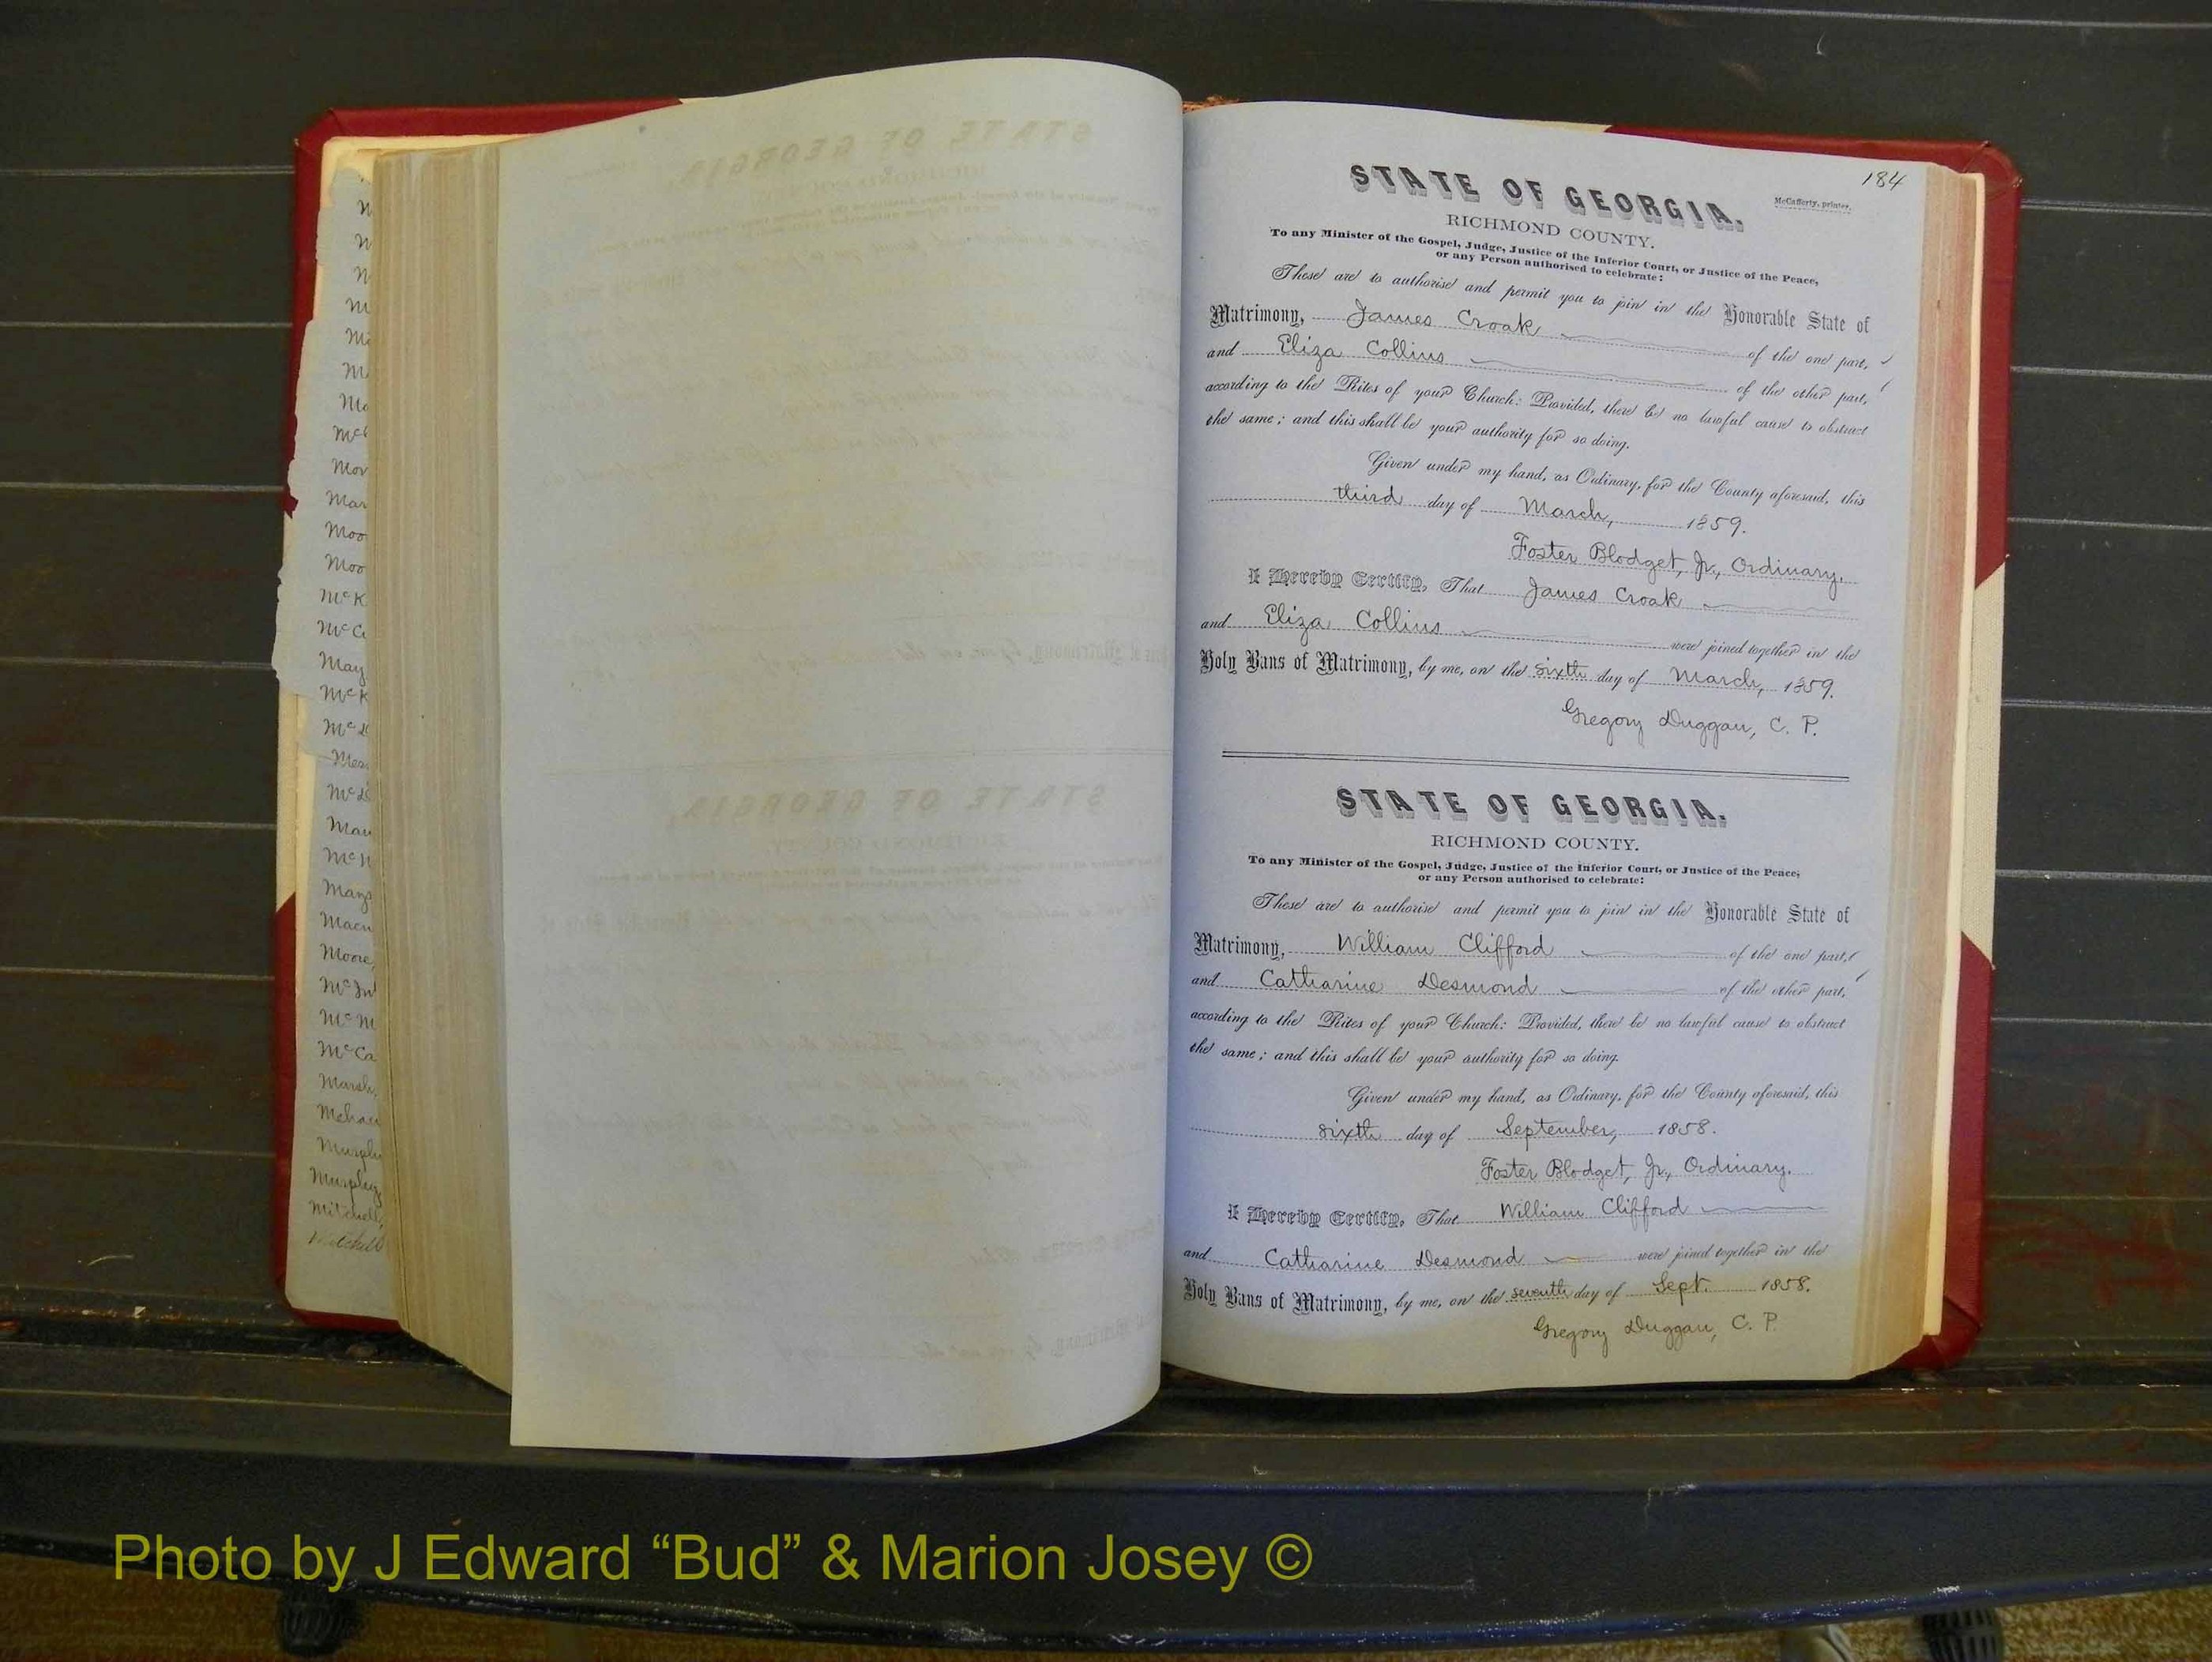 184
STATE OF GEORGIA.
McCafferty, printer.
RICHMOND COUNTY.
To any Minister of the Gospel, Judge, Justice of the Inferior Court, or Justice of the Peace,
or any Person authorised to celebrate:
These are to authorise and permit you to join in the Honorable State of
Matrimony, James Croak of the one part,
and Eliza Collins of the other part,
according to the Rites of your Church: Provided, there be no lawful cause to obstruct
the same; and this shall be your authority for so doing.
Given under my hand, as Ordinary, for the County aforesaid, this
third day of March, 1859.
Foster Blodget, Jr., Ordinary.
I Hereby Certify, That James Croak
and Eliza Collins were joined together in the
Holy Bans of Matrimony, by me, on the sixth day of March, 1859.
Gregory Duggan, C. P.
STATE OF GEORGIA.
RICHMOND COUNTY.
To any Minister of the Gospel, Judge, Justice of the Inferior Court, or Justice of the Peace,
or any Person authorised to celebrate:
These are to authorise and permit you to join in the Honorable State of
Matrimony, William Clifford of the one part,
and Catharine Desmond of the other part,
according to the Rites of your Church: Provided, there be no lawful cause to obstruct
the same; and this shall be your authority for so doing.
Given under my hand, as Ordinary, for the County aforesaid, this
sixth day of September, 1858.
Foster Blodget, Jr., Ordinary.
I Hereby Certify, That William Clifford
and Catharine Desmond were joined together in the
Holy Bans of Matrimony, by me, on the seventh day of Sept. 1858.
Gregory Duggan, C. P.
Moore,
Murphy,
Mitchell,
Mitchell
Photo by J Edward “Bud” & Marion Josey ©